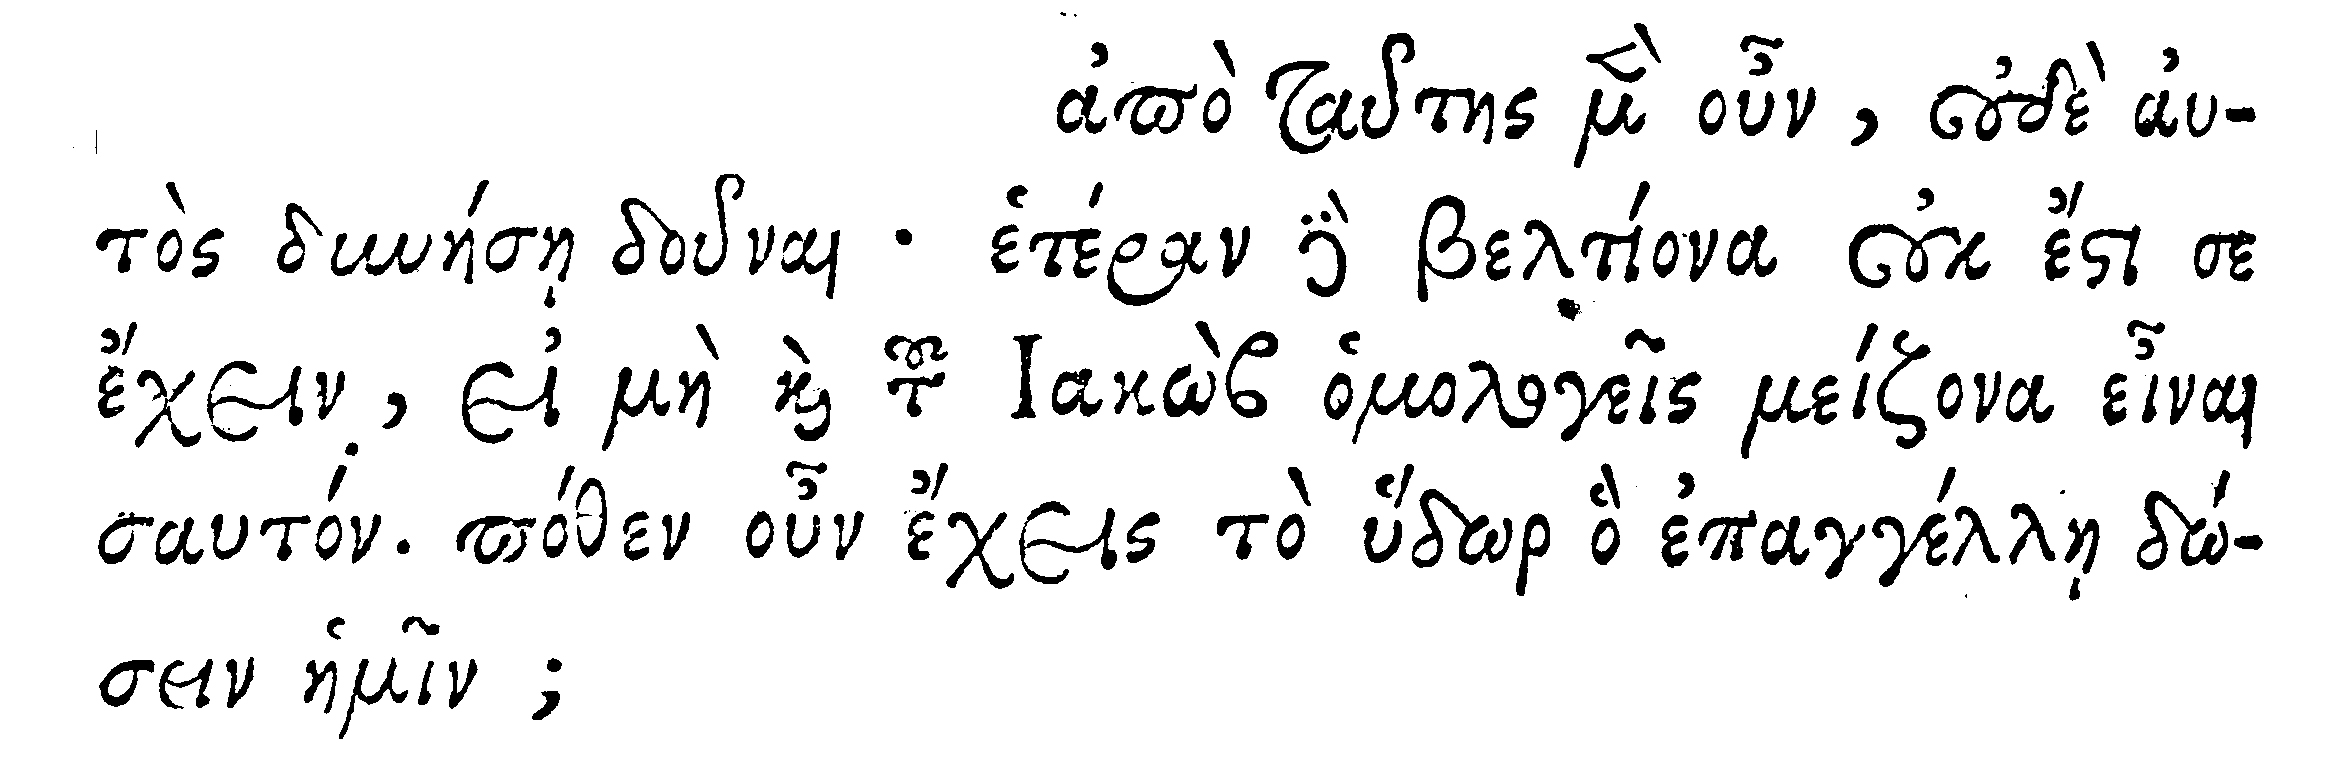 ἀπὸ ταύτης μὲν οὖν, οὐδὲ αὐ-
τὸς δυνήσῃ δοῦναι· ἑτέραν δὲ βελτίονα οὐκ ἔστι σε
ἔχειν, εἰ μὴ καὶ τοῦ Ἰακὼβ ὁμολογεῖς μείζονα εἶναι
σαυτόν. πόθεν οὖν ἔχεις τὸ ὕδωρ ὃ ἐπαγγέλλῃ δώ-
σειν ἡμῖν;